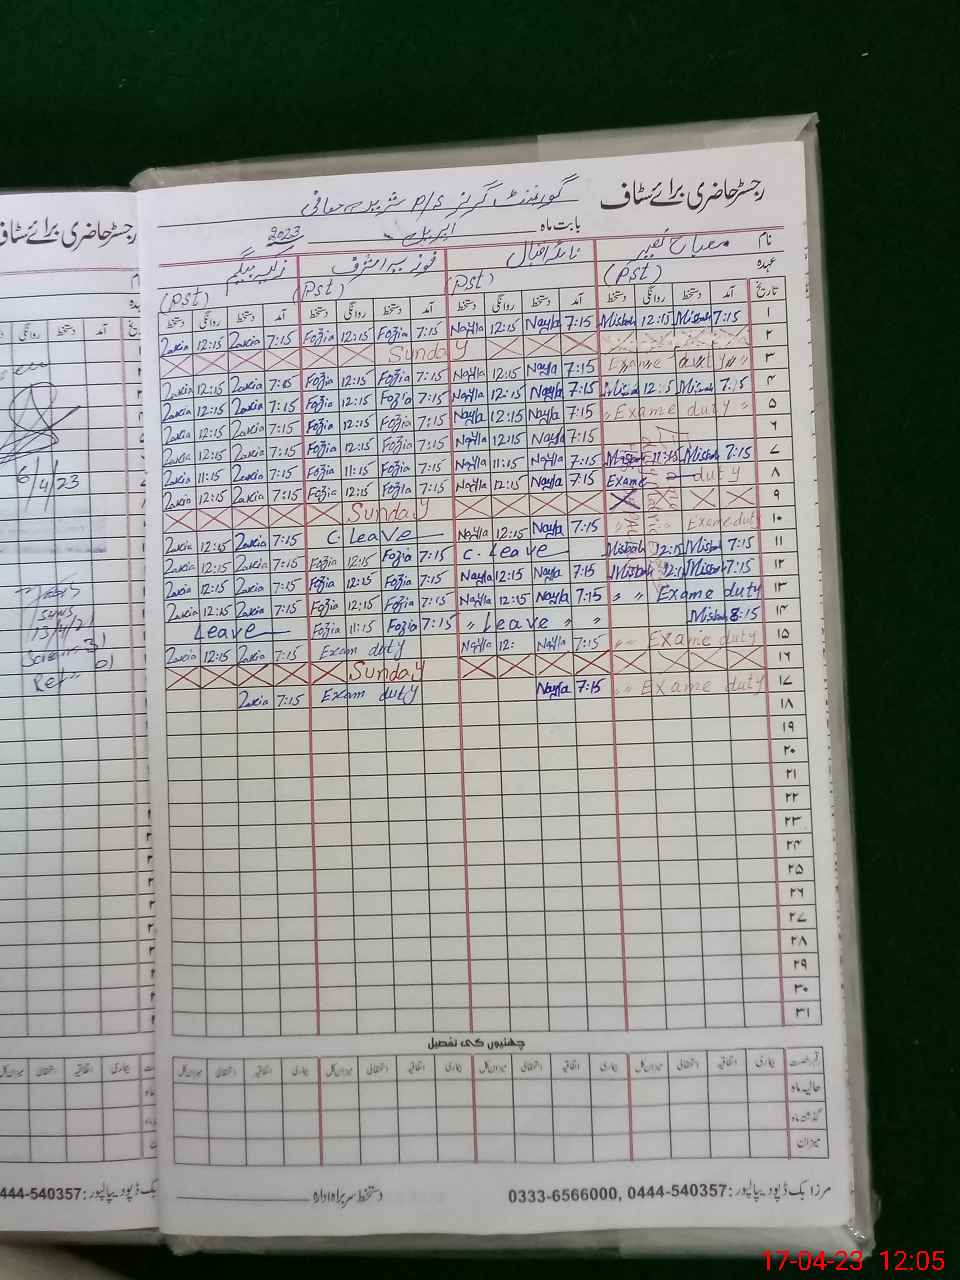 رجسٹر حاضری برائے سٹاف
گورنمنٹ گرلز P/S
بابت ماہ اپریل 2023
نام مصباح نائلہ اقبال فوزیہ اشرف زکیہ بیگم
عہدہ (Pst) (Pst) (Pst) (Pst)
تاریخ آمد دستخط روانگی دستخط آمد دستخط روانگی دستخط آمد دستخط روانگی دستخط آمد دستخط روانگی دستخط
۱ 7:15 Misbah 12:15 Misbah 7:15 Nayla 12:15 Nayla 7:15 Fozia 12:15 Fozia 7:15 Zakia 12:15 Zakia
۲ Sunday
۳ Exame duty " 7:15 Nayla 12:15 Nayla 7:15 Fozia 12:15 Fozia 7:15 Zakia 12:15 Zakia
۴ 7:15 Misbah 12:15 Misbah 7:15 Nayla 12:15 Nayla 7:15 Fozia 12:15 Fozia 7:15 Zakia 12:15 Zakia
۵ " Exame duty " 7:15 Nayla 12:15 Nayla 7:15 Fozia 12:15 Fozia 7:15 Zakia 12:15 Zakia
۶ 7:15 Nayla 12:15 Nayla 7:15 Fozia 12:15 Fozia 7:15 Zakia 12:15 Zakia
۷ 7:15 Misbah 11:15 Misbah 7:15 Nayla 11:15 Nayla 7:15 Fozia 11:15 Fozia 7:15 Zakia 11:15 Zakia
۸ Exame duty 7:15 Nayla 12:15 Nayla 7:15 Fozia 12:15 Fozia 7:15 Zakia 12:15 Zakia
۹ Sunday
۱۰ Exame duty 7:15 Nayla 12:15 Nayla C. Leave 7:15 Zakia 12:15 Zakia
۱۱ 7:15 Misbah 12:15 Misbah C. Leave 7:15 Fozia 12:15 Fozia 7:15 Zakia 12:15 Zakia
۱۲ 7:15 Misbah 12:1 Misbah 7:15 Nayla 12:15 Nayla 7:15 Fozia 12:15 Fozia 7:15 Zakia 12:15 Zakia
۱۳ " " Exame duty 7:15 Nayla 12:15 Nayla 7:15 Fozia 12:15 Fozia 7:15 Zakia 12:15 Zakia
۱۴ 8:15 Misbah " Leave " " 7:15 Fozia 11:15 Fozia Leave
۱۵ " " Exame duty 7:15 Nayla 12: Nayla Exam duty 7:15 Zakia 12:15 Zakia
۱۶ Sunday
۱۷ " " Exame duty 7:15 Nayla Exam duty 7:15 Zakia
۱۸
۱۹
۲۰
۲۱
۲۲
۲۳
۲۴
۲۵
۲۶
۲۷
۲۸
۲۹
۳۰
۳۱
چھٹیوں کی تفصیل
قسم رخصت بیماری اتفاقیہ استحقاقی میزان کل بیماری اتفاقیہ استحقاقی میزان کل بیماری اتفاقیہ استحقاقی میزان کل بیماری اتفاقیہ استحقاقی میزان کل
حالیہ ماہ
گذشتہ ماہ
میزان
دستخط سربراہ ادارہ
مرزا بک ڈپو دیپالپور: 0333-6566000, 0444-540357
رجسٹر حاضری برائے سٹاف
6/4/23
بک ڈپو دیپالپور: 444-540357
17-04-23 12:05